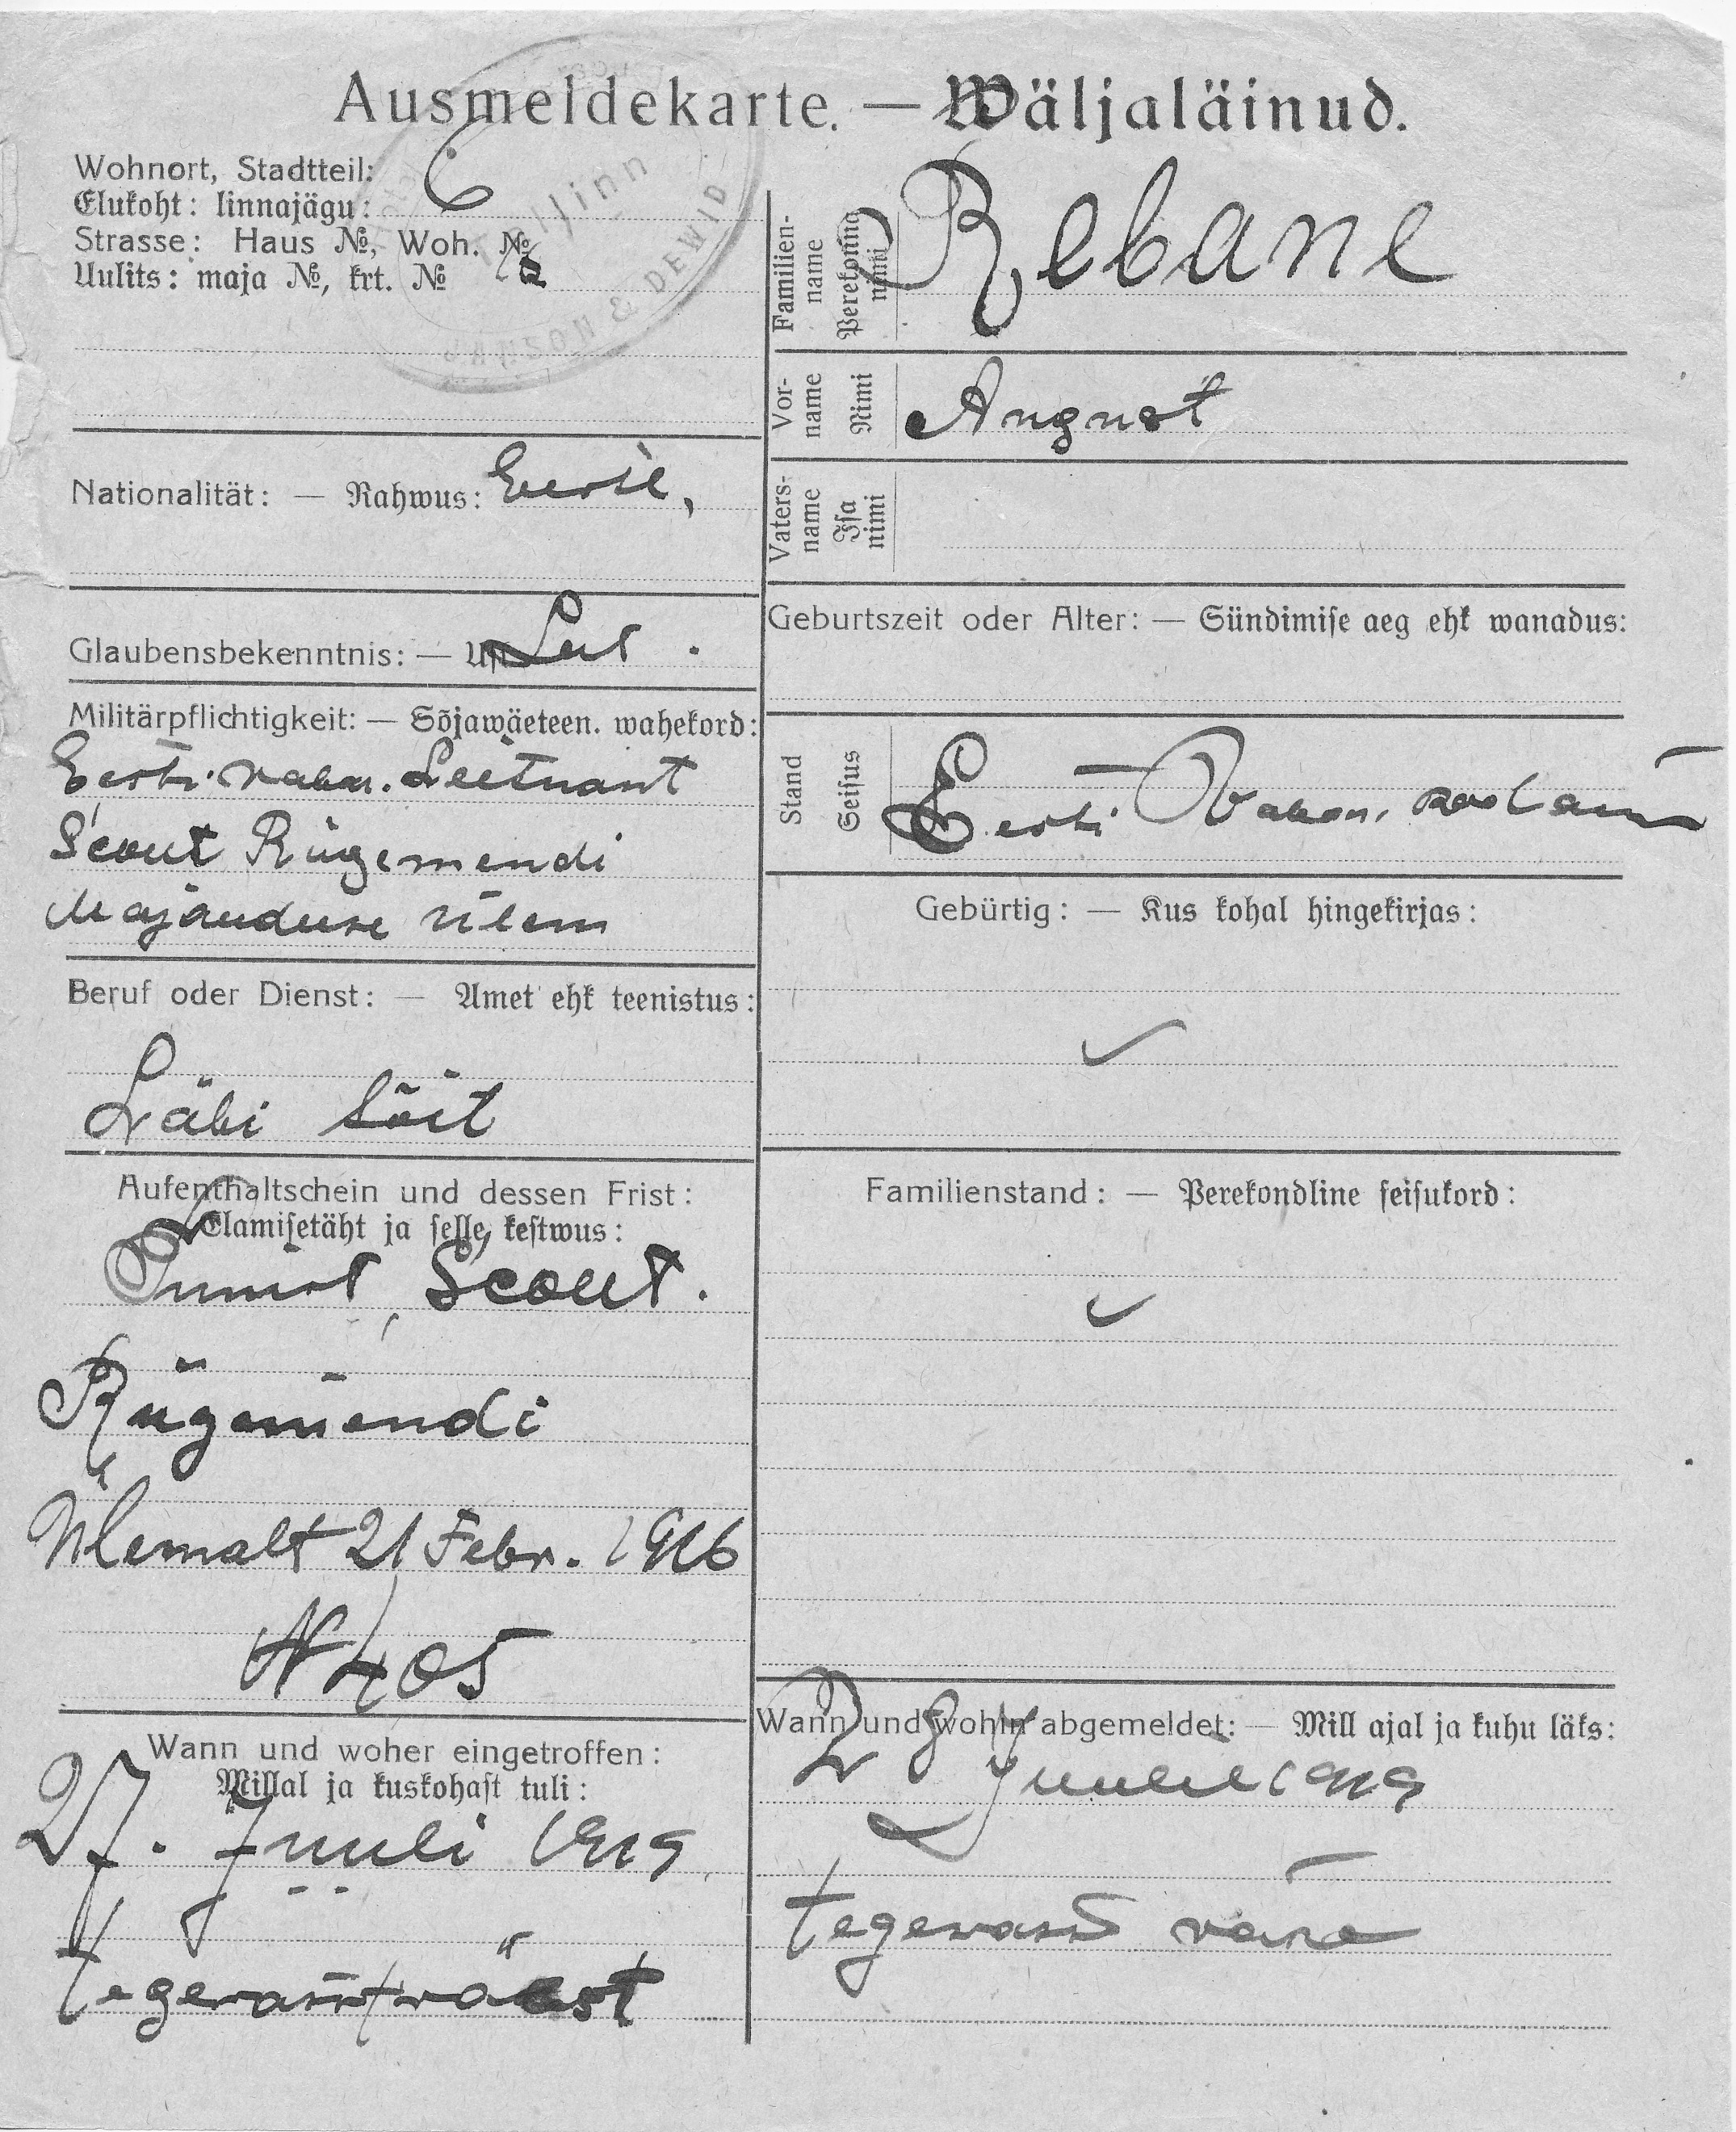 Ausmeldekarte. — Wäljaläinud.
Wohnort, Stadtteil:
Elukoht: linnajägu:
Strasse: Haus №, Woh. №
Uulits: maja №, krt. №
Tallinn
& DEWID
Nationalität: — Rahwus: Eesti,
Glaubensbekenntnis: — Lut.
Militärpflichtigkeit: — Sõjawäeteen. wahekord:
Eesti wabar. Leitnant
Scout Rügemendi
Majanduse ülem
Beruf oder Dienst: — Amet ehk teenistus:
Läbi sõit
Aufenthaltschein und dessen Frist:
Elamisetäht ja selle kestwus:
Scout.
Rügemendi
Ülemalt 21 Febr. 1916
N 405
Wann und woher eingetroffen:
Millal ja kuskohast tuli:
27. Juuli 1919
tegewast wäest
Familien-
name
Perekonna
nimi
Rebane
Vor-
name
Nimi
August
Vaters-
name
Isa
nimi
Geburtszeit oder Alter: — Sündimise aeg ehk wanadus:
Stand
Seisus
Eesti Wabar. kodanik
Gebürtig: — Kus kohal hingekirjas:
Familienstand: — Perekondline seisukord:
Wann und wohin abgemeldet: — Mill ajal ja kuhu läks:
28 Juulil 1919
tegewasse